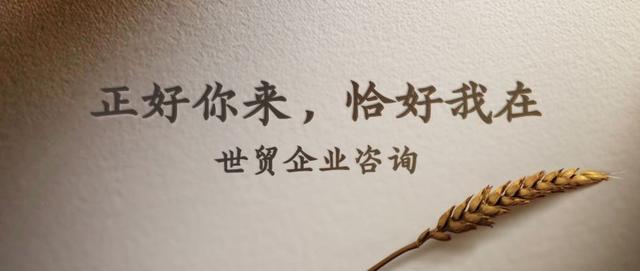 正好你来，恰好我在
世贸企业咨询